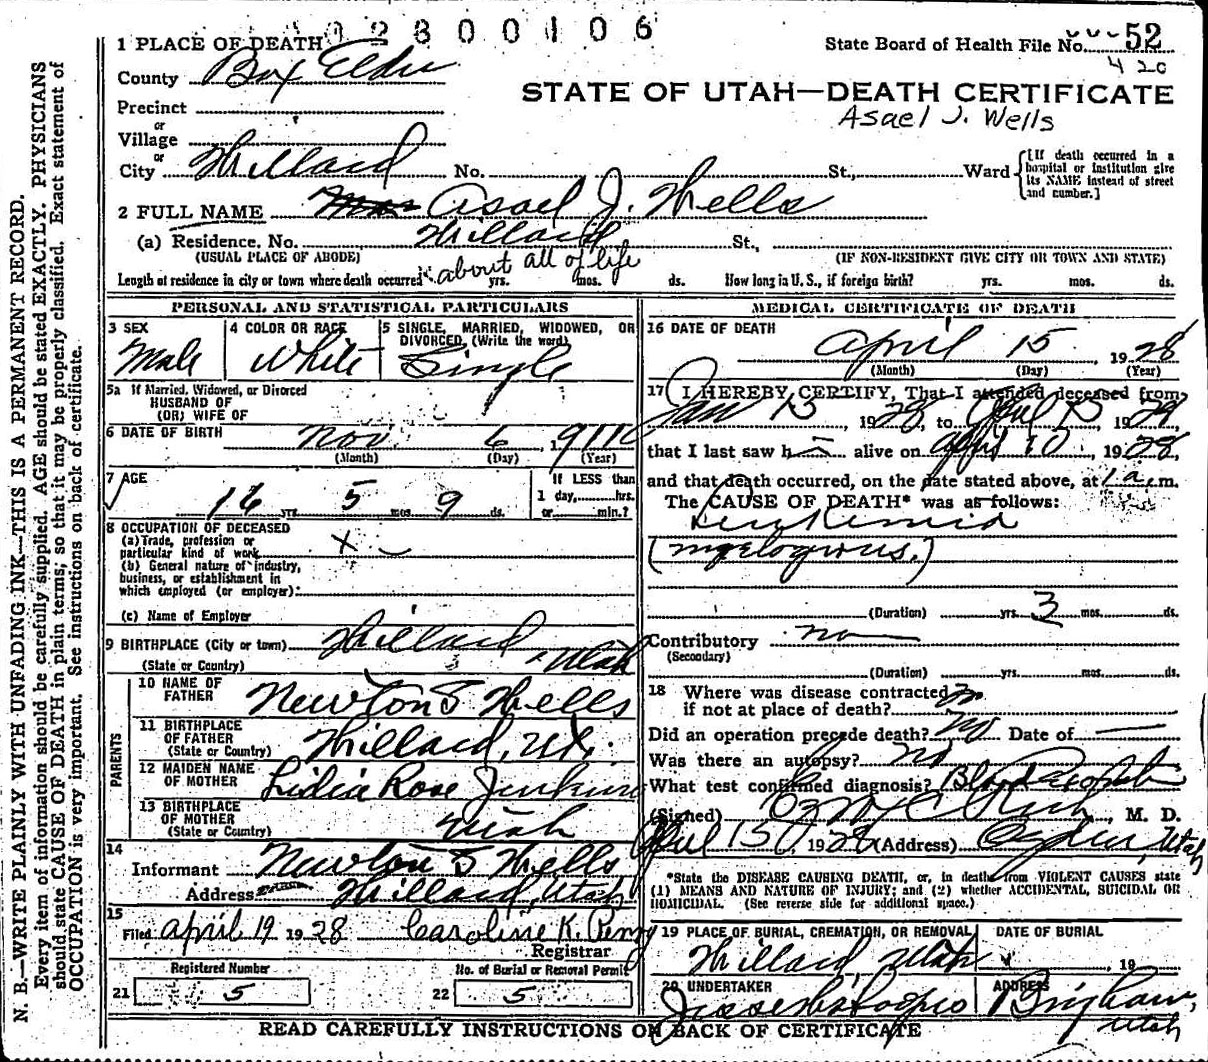 02300106
1 PLACE OF DEATH
State Board of Health File No. 52
420
County Box Elder
STATE OF UTAH—DEATH CERTIFICATE
Precinct
Asael J. Wells
or
Village
or
City Willard No. St., Ward {[If death occurred in a hospital or institution give its NAME instead of street and number.]
2 FULL NAME Asael J. Wells
(a) Residence. No. Willard St.,
(USUAL PLACE OF ABODE) (IF NON-RESIDENT GIVE CITY OR TOWN AND STATE)
Length of residence in city or town where death occurred about all of life yrs. mos. ds. How long in U. S., if foreign birth? yrs. mos. ds.
PERSONAL AND STATISTICAL PARTICULARS
3 SEX
Male
4 COLOR OR RACE
White
5 SINGLE, MARRIED, WIDOWED, OR DIVORCED, (Write the word)
Single
5a If Married, Widowed, or Divorced
HUSBAND OF
(OR) WIFE OF
6 DATE OF BIRTH Nov. 6
(Month) (Day) (Year)
7 AGE
16 yrs. 5 mos. 9 ds.
If LESS than
1 day, hrs.
or min.?
8 OCCUPATION OF DECEASED
(a) Trade, profession or
particular kind of work
(b) General nature of industry,
business, or establishment in
which employed (or employer):
(c) Name of Employer
9 BIRTHPLACE (City or town) Willard
(State or Country) Utah
PARENTS
10 NAME OF FATHER Newton S Wells
11 BIRTHPLACE OF FATHER (State or Country) Willard, Ut.
12 MAIDEN NAME OF MOTHER Lidia Rose
13 BIRTHPLACE OF MOTHER (State or Country) Utah
14
Informant Newton S Wells
Address Willard, Utah
15
Filed April 19 1928 Caroline K.
Registrar
Registered Number
21 5
No. of Burial or Removal Permit
22 5
MEDICAL CERTIFICATE OF DEATH
16 DATE OF DEATH
April 15 1928
(Month) (Day) (Year)
17 I HEREBY CERTIFY, That I attended deceased from
Jan 15 1928, to April 15 19
that I last saw h alive on April 10, 1928,
and that death occurred, on the date stated above, at 1 a.m.
The CAUSE OF DEATH* was as follows:
Leukemia
(myelogenous.)
(Duration) yrs. 3 mos. ds.
Contributory no
(Secondary)
(Duration) yrs. mos. ds.
18 Where was disease contracted
if not at place of death?
Did an operation precede death? No Date of —
Was there an autopsy? no
What test confirmed diagnosis? Blood
(Signed) Rich, M. D.
April 15 1928 (Address) Ogden, Utah
*State the DISEASE CAUSING DEATH, or, in deaths from VIOLENT CAUSES state
(1) MEANS AND NATURE OF INJURY; and (2) whether ACCIDENTAL, SUICIDAL OR
HOMICIDAL. (See reverse side for additional space.)
19 PLACE OF BURIAL, CREMATION, OR REMOVAL
Willard, Utah
DATE OF BURIAL
, 19
20 UNDERTAKER
ADDRESS
Brigham, Utah
READ CAREFULLY INSTRUCTIONS ON BACK OF CERTIFICATE
N. B.—WRITE PLAINLY WITH UNFADING INK—THIS IS A PERMANENT RECORD.
Every item of information should be carefully supplied. AGE should be stated EXACTLY. PHYSICIANS
should state CAUSE OF DEATH in plain terms; so that it may be properly classified. Exact statement of
OCCUPATION is very important. See instructions on back of certificate.